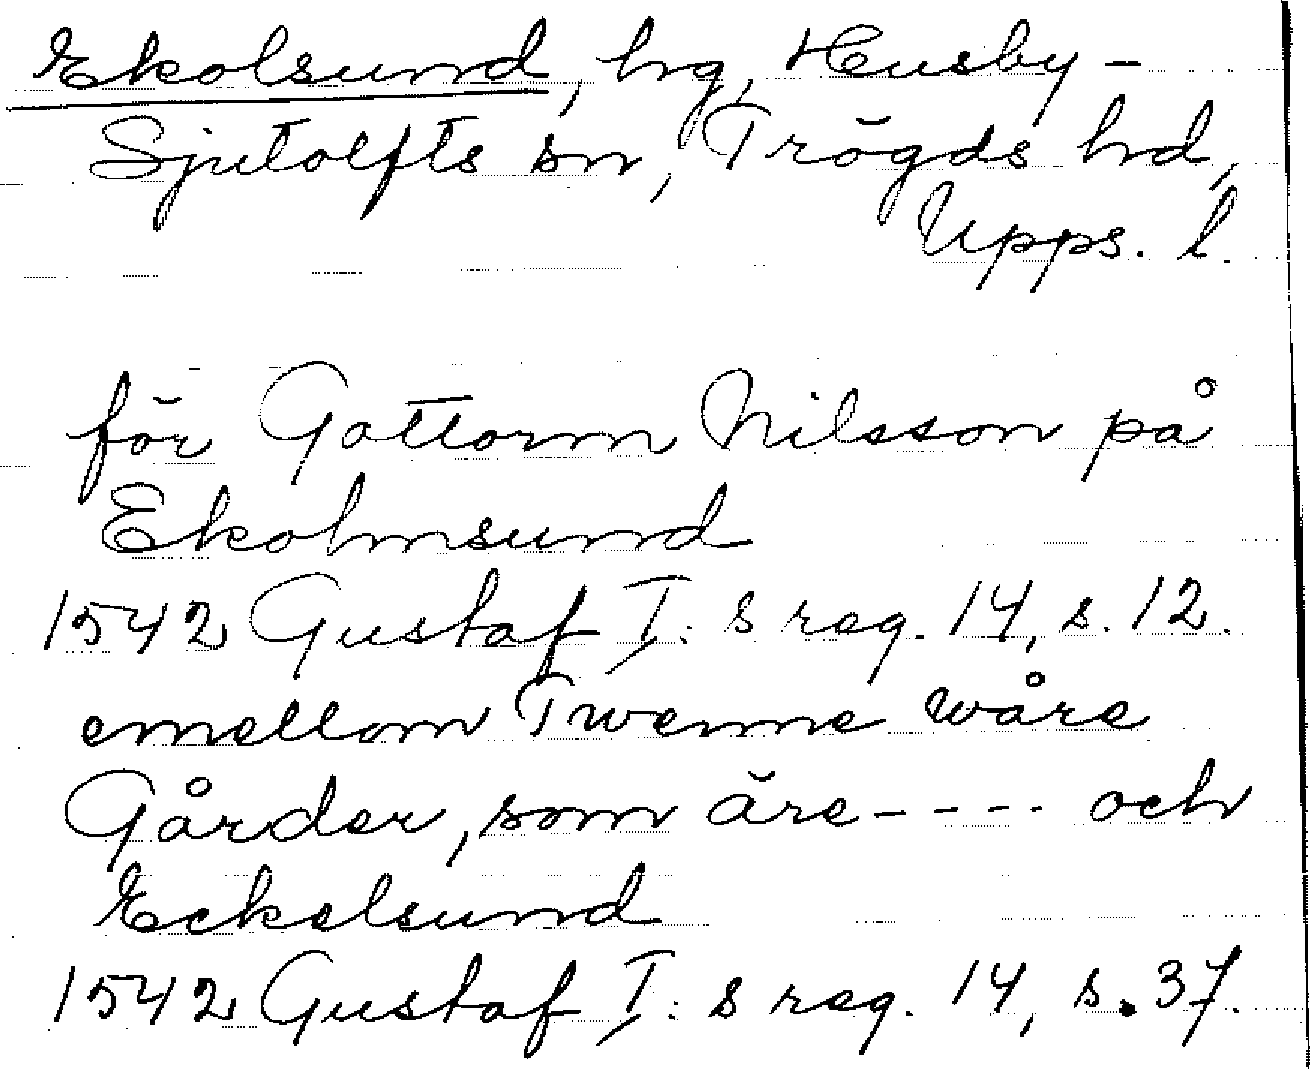 Ekolsund, hg, Husby-
Sjutolfts sn, Trögds hd,
Upps. l.
för Gottorm Nilsson på
Ekolmsund
1542 Gustaf I:s reg. 14, s. 12.
emellom Twenne wåre
Gårder, som äre---- och
Eckelsund
1542 Gustaf I:s reg. 14, s. 37.